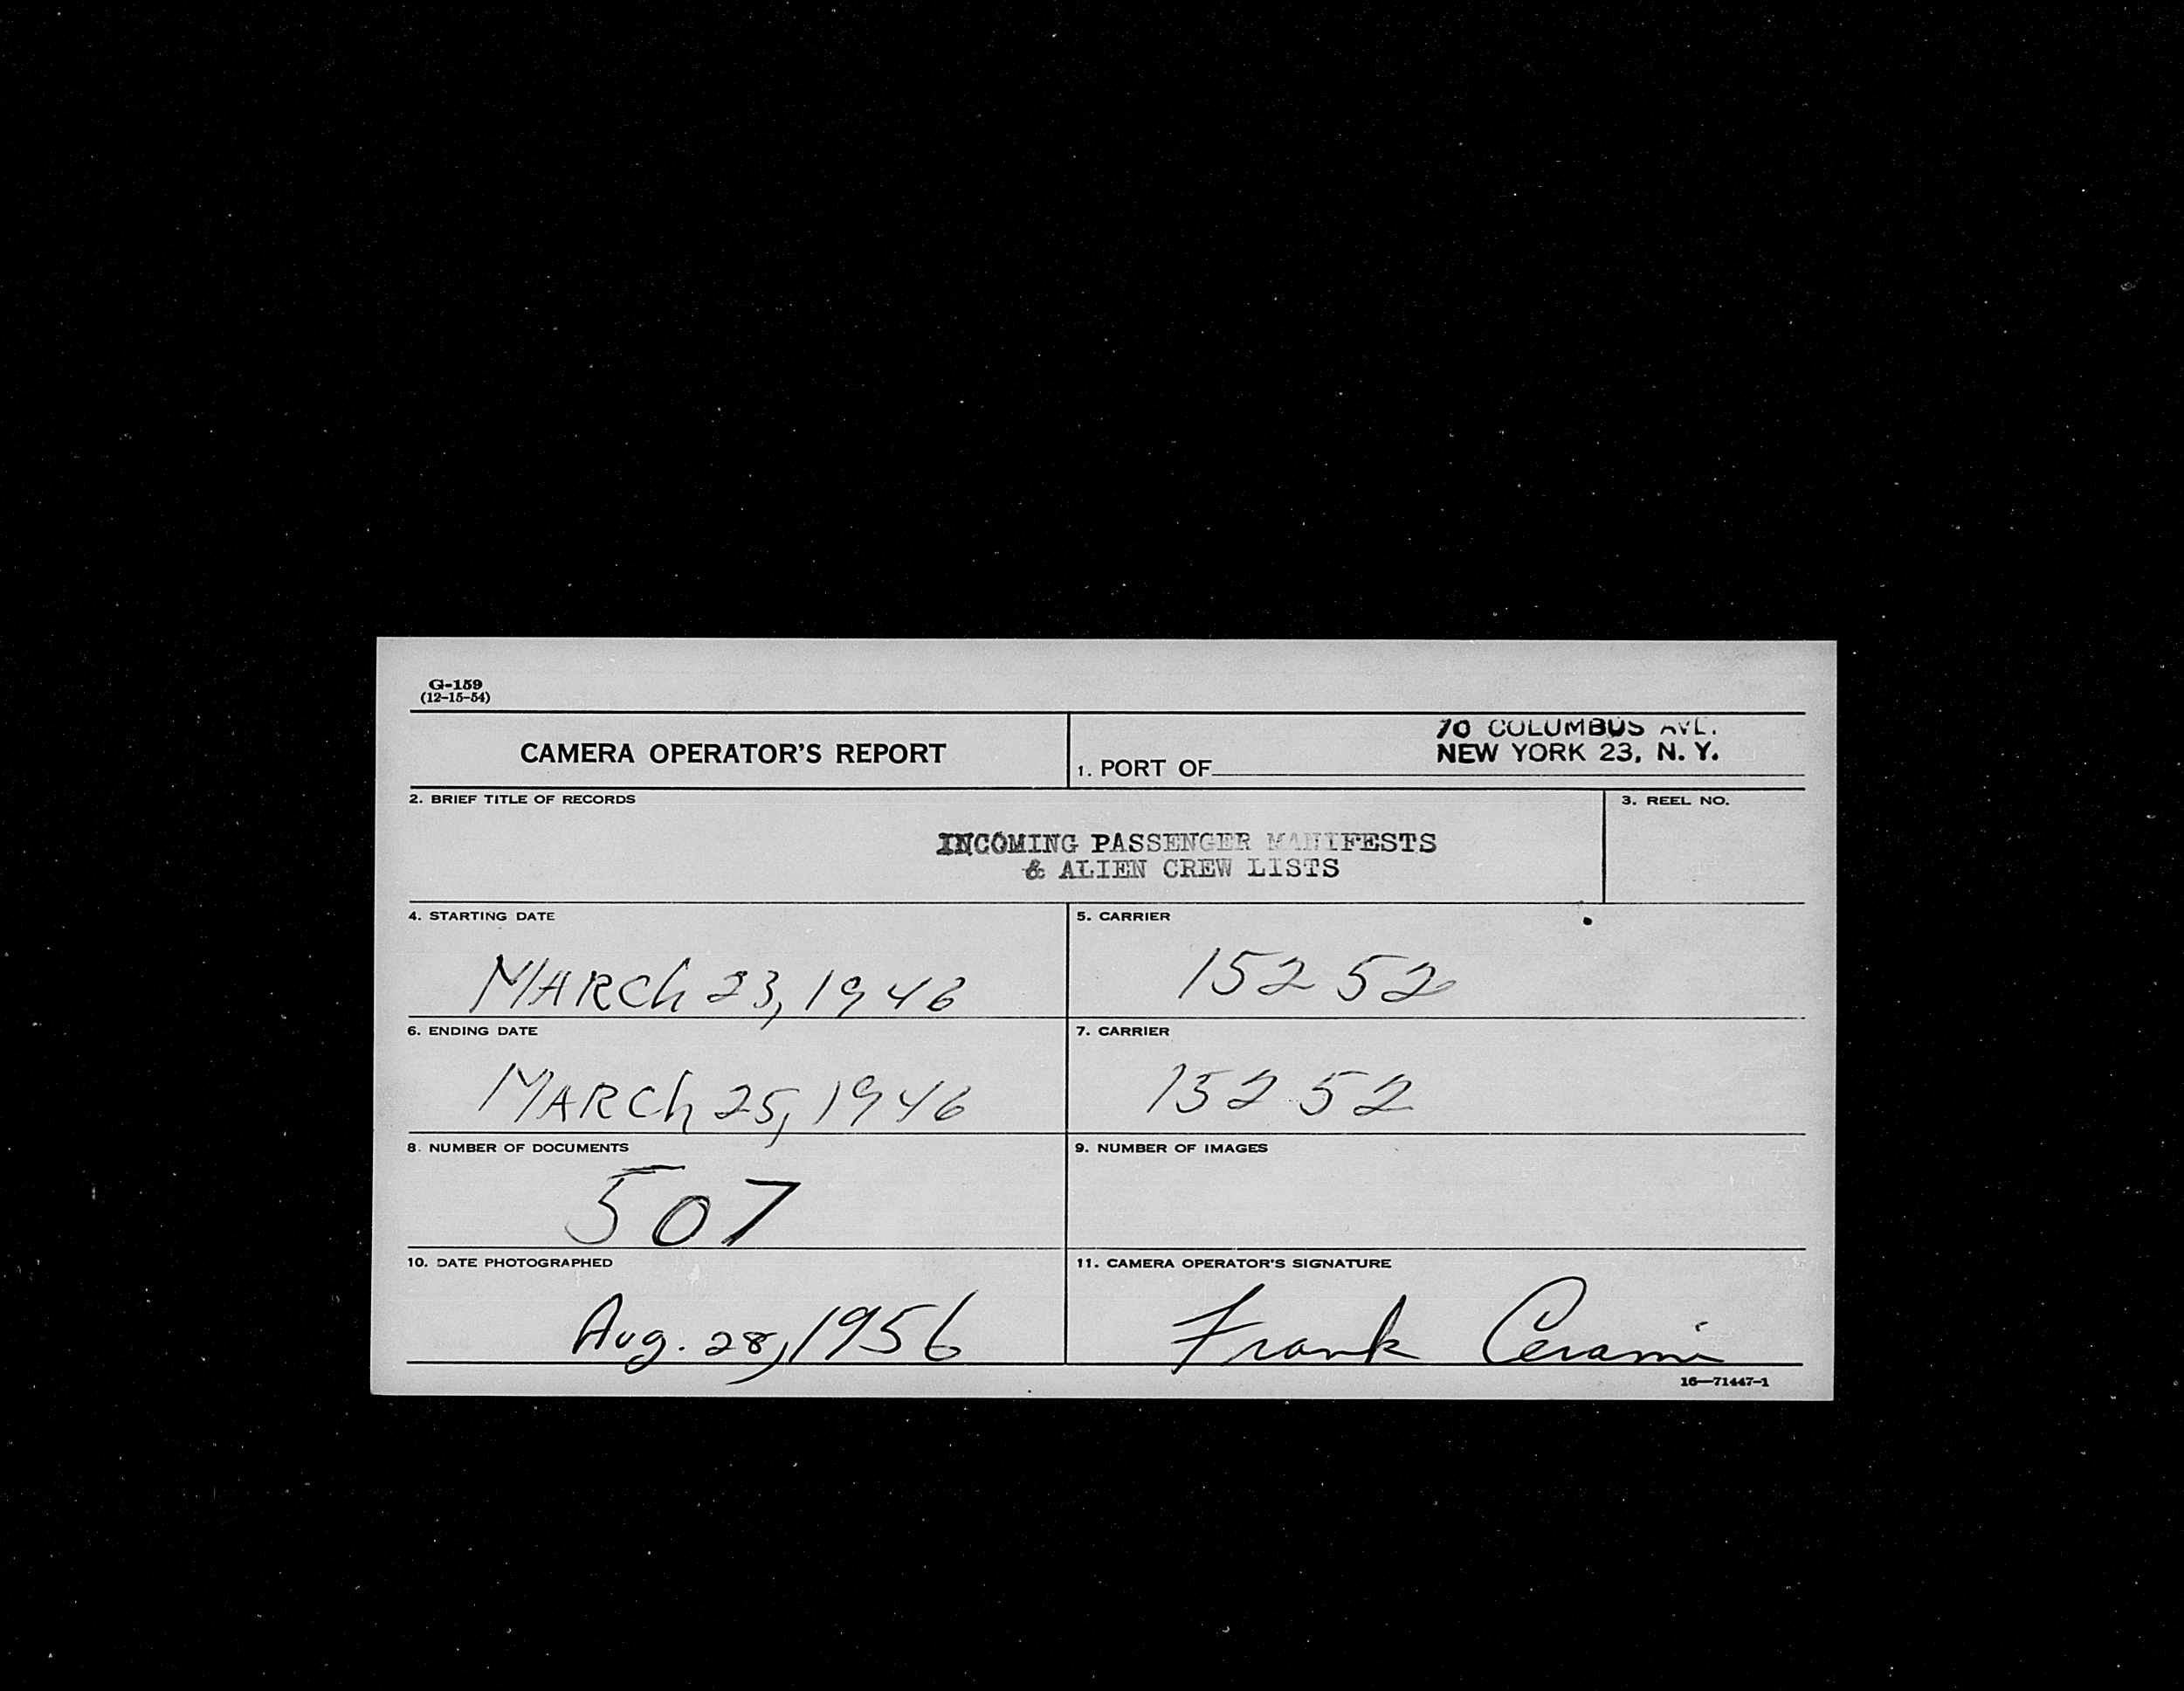 G-159
(12-15-54)
CAMERA OPERATOR'S REPORT
1. PORT OF
70 COLUMBUS AVE.
NEW YORK 23, N. Y.
2. BRIEF TITLE OF RECORDS
INCOMING PASSENGER MANIFESTS
& ALIEN CREW LISTS
3. REEL NO.
4. STARTING DATE
MARCh 23, 1946
5. CARRIER
15252
6. ENDING DATE
MARCh 25, 1946
7. CARRIER
15252
8. NUMBER OF DOCUMENTS
507
9. NUMBER OF IMAGES
10. DATE PHOTOGRAPHED
Aug. 28, 1956
11. CAMERA OPERATOR'S SIGNATURE
Frank Cerami
16—71447-1